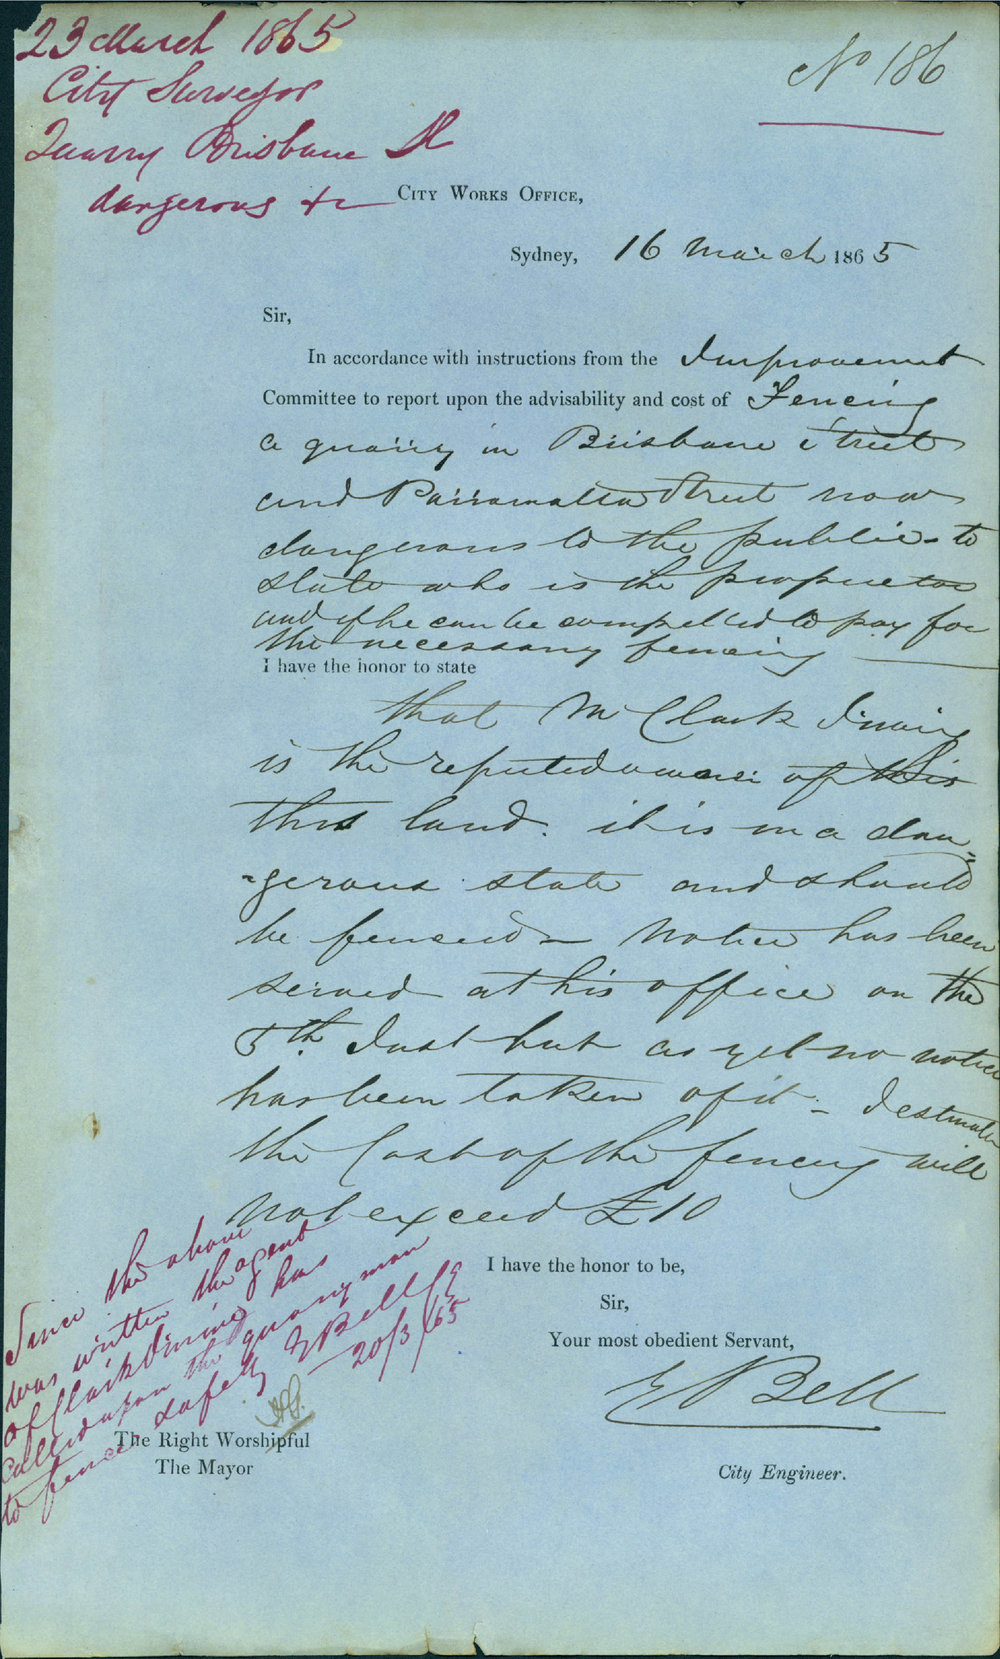 23 March 1865
City Surveyor
Quarry Brisbane St
dangerous &c
No 186
City Works Office,
Sydney, 16 March 1865
Sir,
In accordance with instructions from the Improvement
Committee to report upon the advisability and cost of Fencing
a quarry in Brisbane Street
and Parramatta Street now
dangerous to the public - to
state who is the proprietor
and if he can be compelled to pay for
the necessary fencing
I have the honor to state
that Mr Clark Irving
is the reputed owner of this
this land. it is in a dan-
-gerous state and should
be fenced - Notice has been
served at his office on the
5th Inst but as yet no notice
has been taken of it - I estimate
the Cost of the fencing will
not exceed £10
I have the honor to be,
Sir,
Your most obedient Servant,
E Bell
City Engineer.
Since the above
was written the agent
of Clark Irving has
called upon the quarryman
to fence safely EBell CE
20/3/65
The Right Worshipful
The Mayor